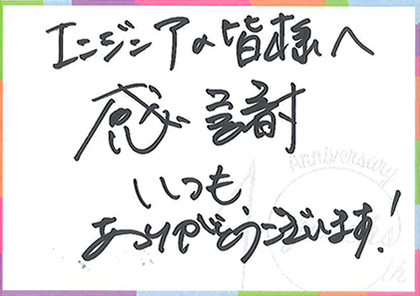 エンジニアの皆様へ
感謝
いつも
ありがとうございます!
Anniversary
th